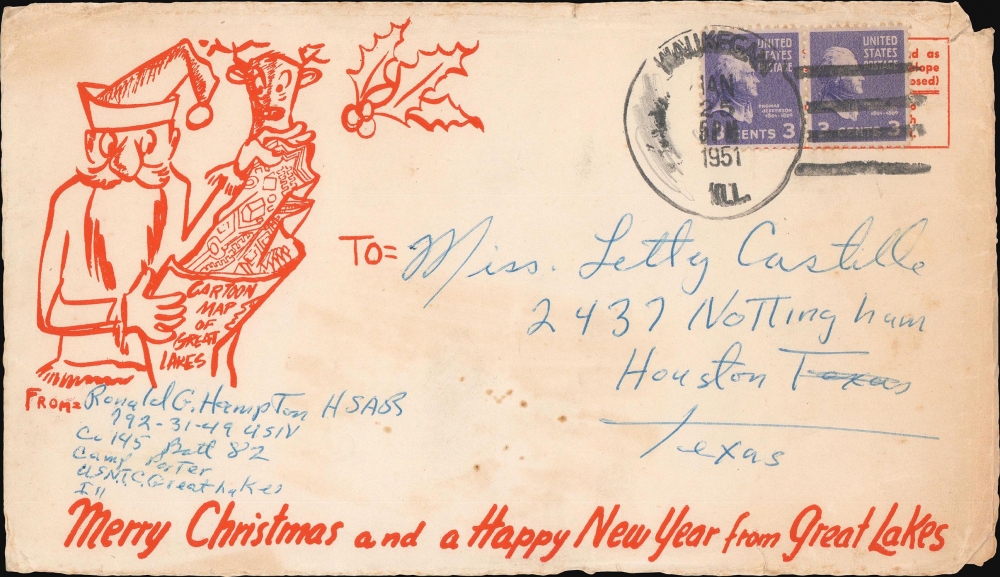 WAUKEGAN
JAN
25
PM
1951
ILL.
UNITED
STATES
POSTAGE
THOMAS
JEFFERSON
1801-1809
3 CENTS 3
UNITED
STATES
POSTAGE
3 CENTS 3
d as
lope
osed)
TO= Miss. Letty Castille
2437 Nottingham
Houston Texas
Texas
CARTOON
MAP
OF
GREAT
LAKES
FROM= Ronald G. Hampton HSAR
792-31-49 USN
Co 145 Batl 82
Camp Porter
USN.T.C. Great Lakes
Ill
Merry Christmas and a Happy New Year from Great Lakes